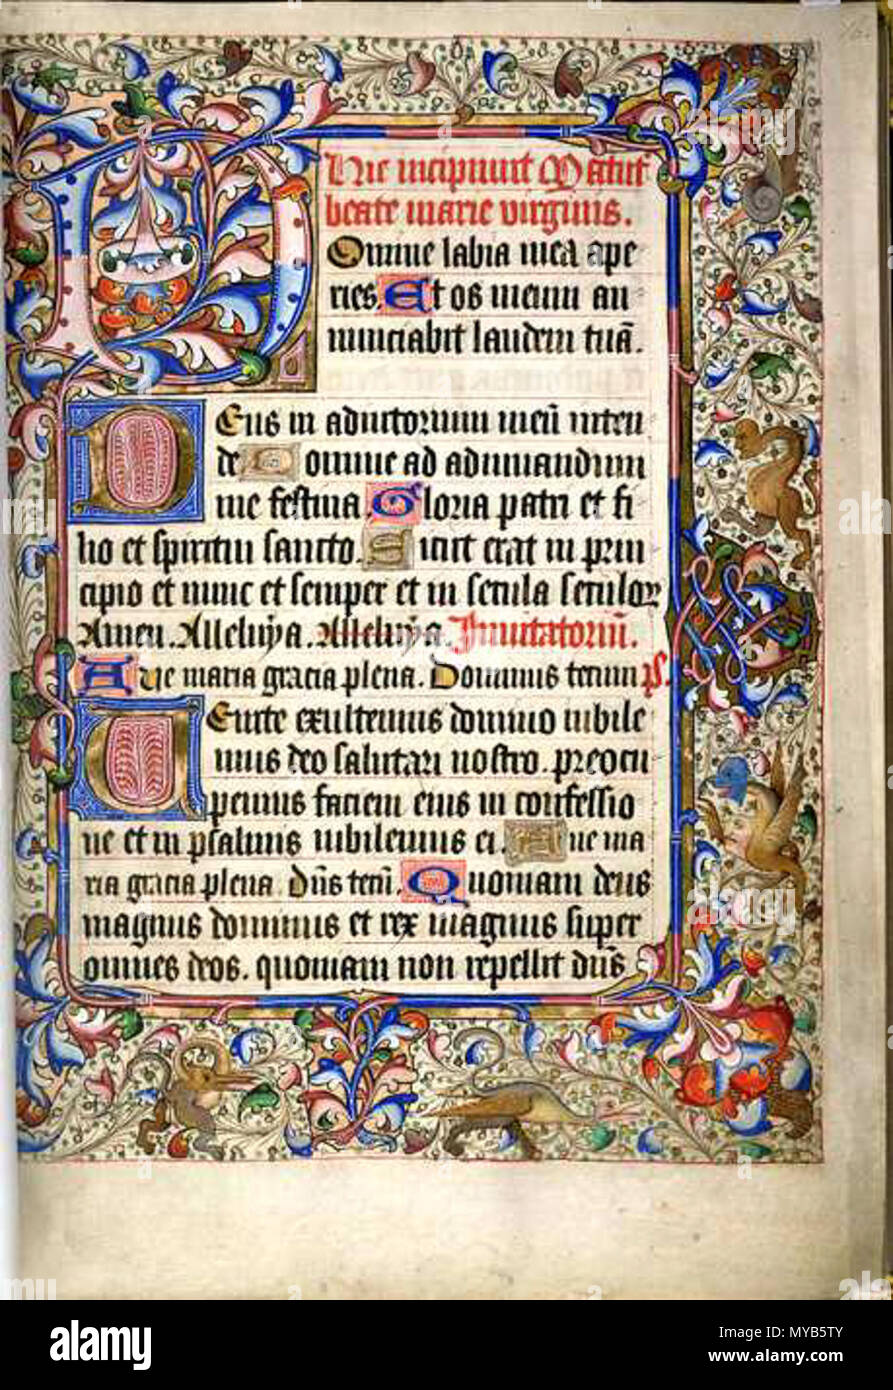 Hic incipiunt Matut
beate marie virginis.
Domine labia mea ape
ries. Et os meum an
nunciabit laudem tuā.
Deus in adiutorium meū inten
de Domine ad adiuuandum
me festina. Gloria patri et fi
lio et spiritui sancto. Sicut erat in prin
cipio et nunc et semper et in secula seculoꝝ
Amen. Alleluya. Alleluya. Inuitatoriū.
Aue maria gracia plena. Dominus tecum ps.
Uenite exultemus domino iubile
mus deo salutari nostro. preocu
pemus faciem eius in confessio
ne et in psalmis iubilemus ei. Aue ma
ria gracia plena. Dn̄s tecū. Quoniam deus
magnus dominus et rex magnus super
omnes deos. quoniam non repellit dn̄s
alamy
Image ID: MYB5TY
www.alamy.com